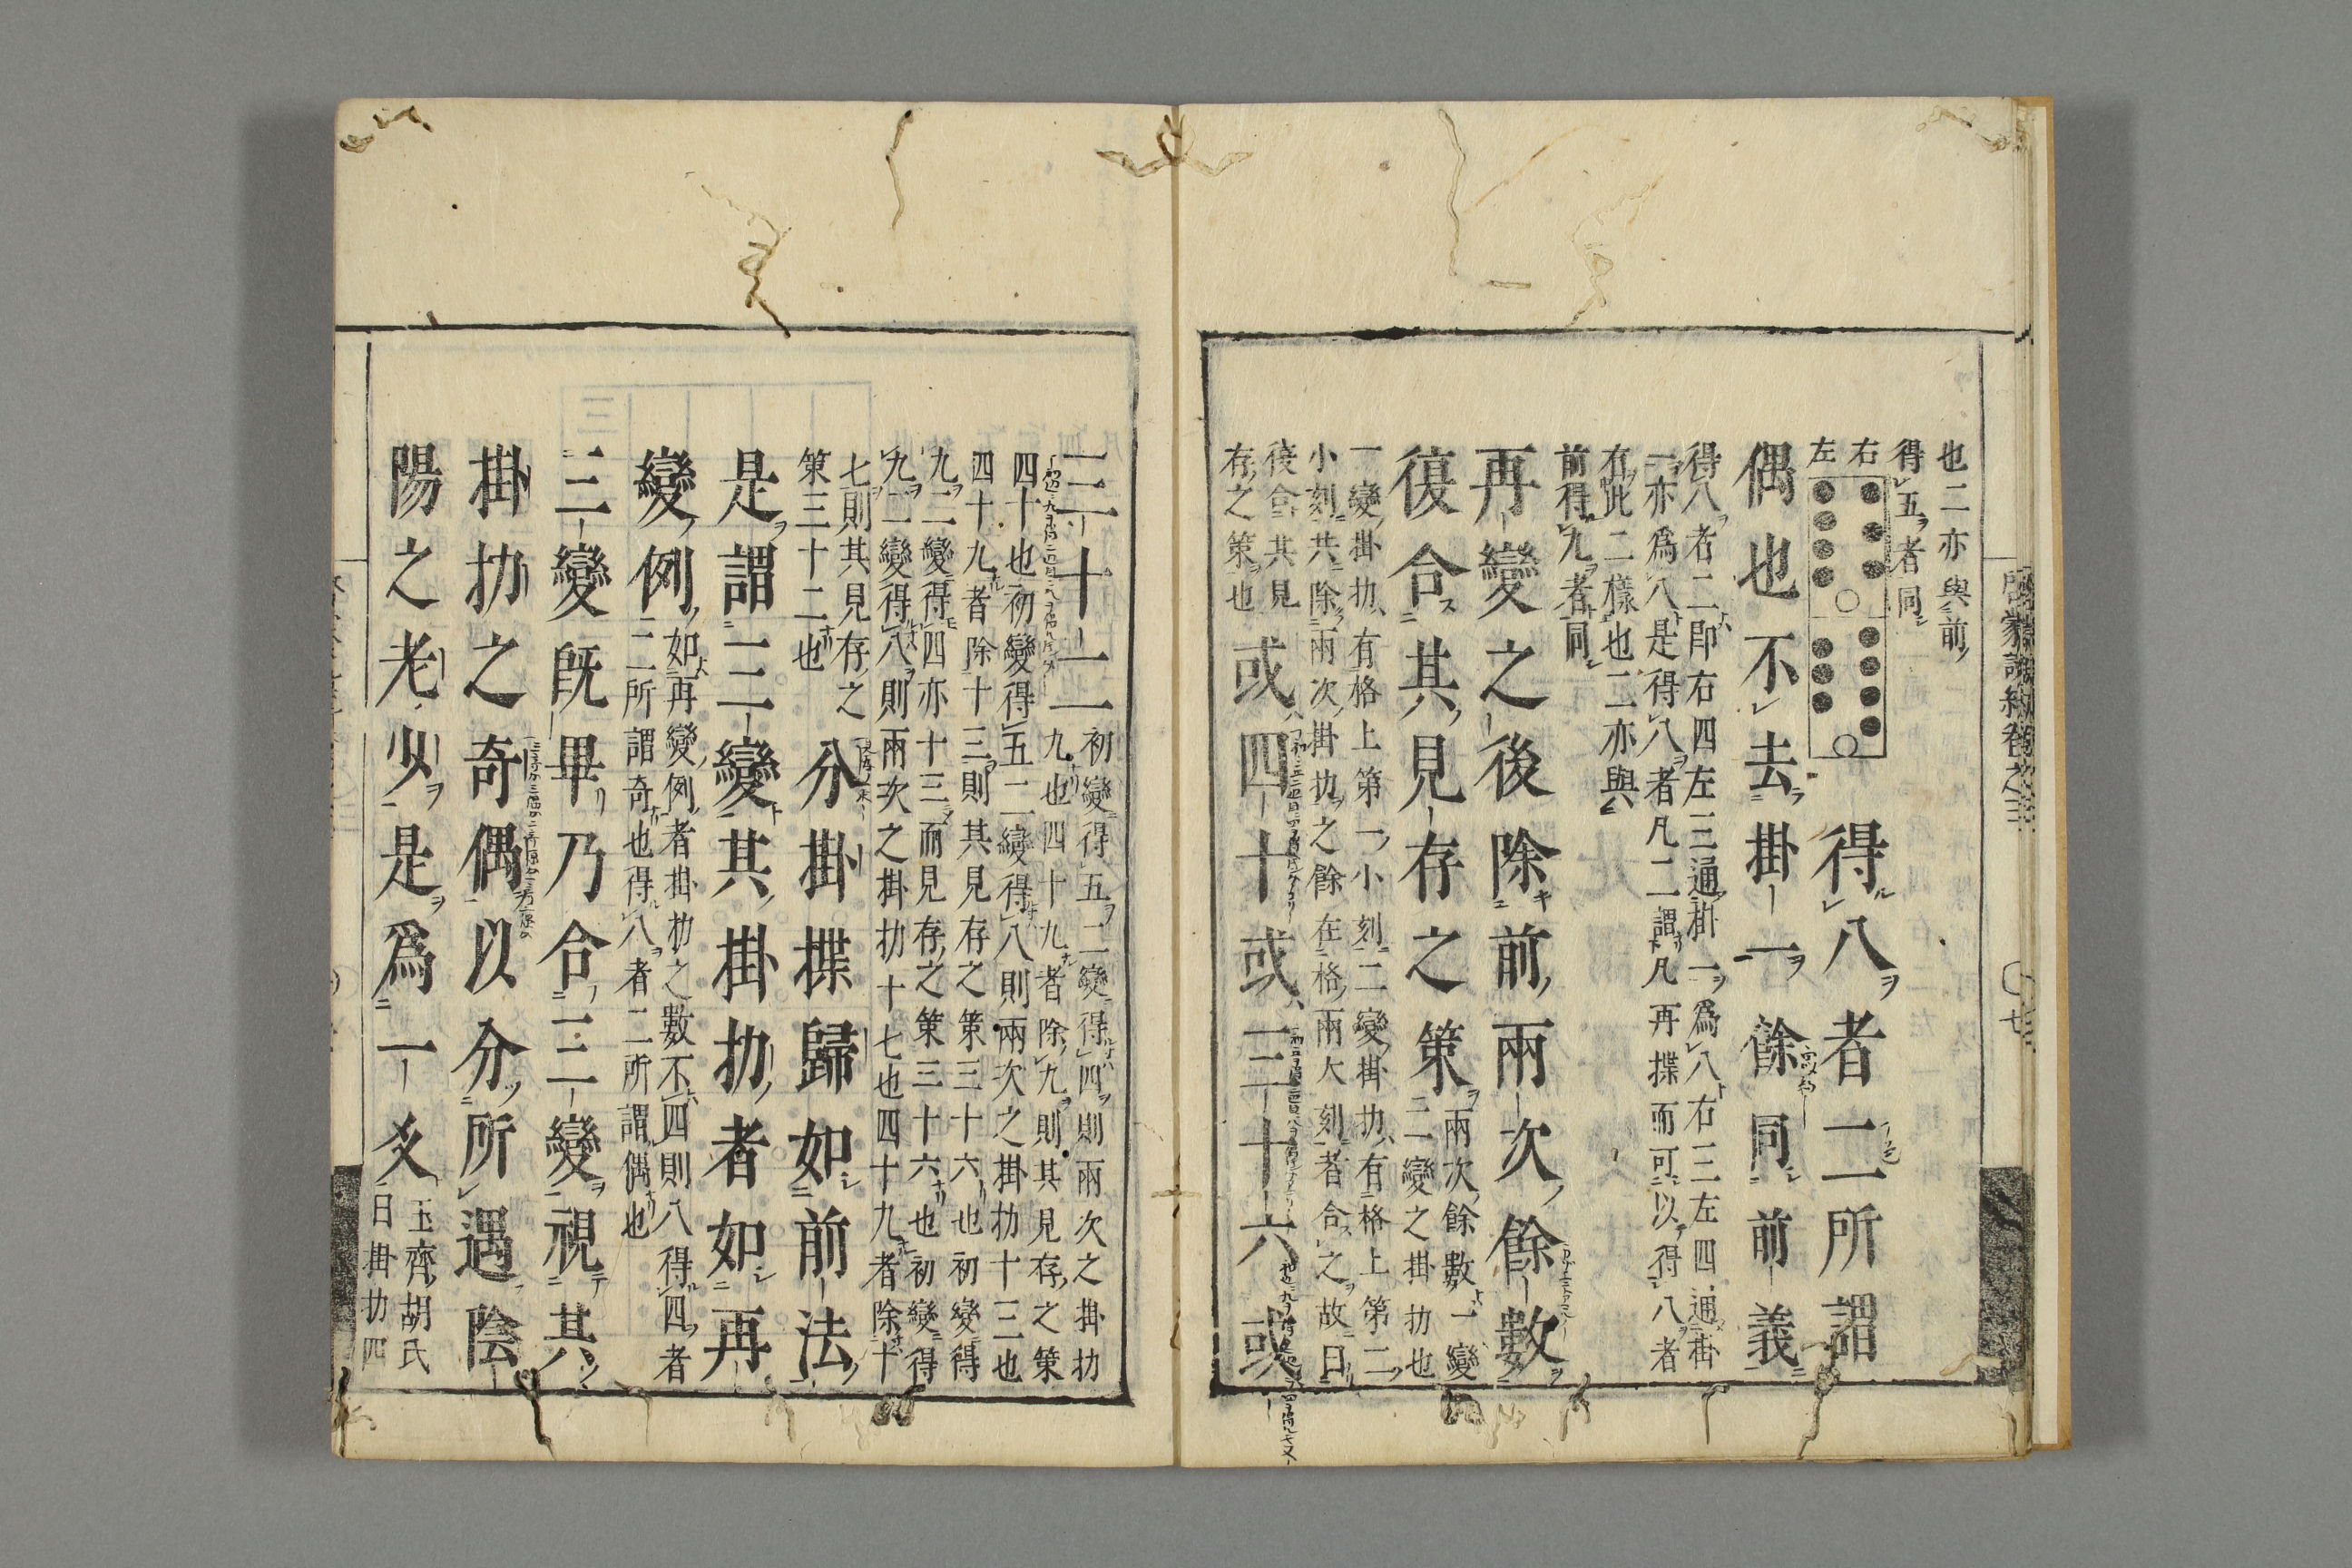 也二亦與前
得五者同
右
左
得八者二所謂
偶也不去掛一餘同前義
得八者二即右四左三通掛一爲八右三左四通掛
一亦爲八是得八者凡二謂凡再揲而可以得八者
有此二樣也二亦與
前得九者同
再變之後除前兩次餘數
復合其見存之策兩次餘數一變
二變之掛扐也
一變掛扐有格上第一小刻二變掛扐有格上第二
小刻共除兩次掛扐之餘在格兩大刻者合之故曰
復合其見
存之策也
或四十或三十六或
三十二初變得五二變得四則兩次之掛扐
九也四十九者除九則其見存之策
四十也初變得五二變得八則兩次之掛扐十三也
四十九者除十三則其見存之策三十六也初變得
九二變得四亦十三而見存之策三十六也初變得
九二變得八則兩次之掛扐十七也四十九者除十
七則其見存之
策三十二也
分掛揲歸如前法
是謂三變其掛扐者如再
變例如再變例者掛扐之數不四則八得四者
二所謂奇也得八者二所謂偶也
三變既畢乃合三變視其
掛扐之奇偶以分所遇陰
陽之老少是爲一爻玉齋胡氏
曰掛扐四